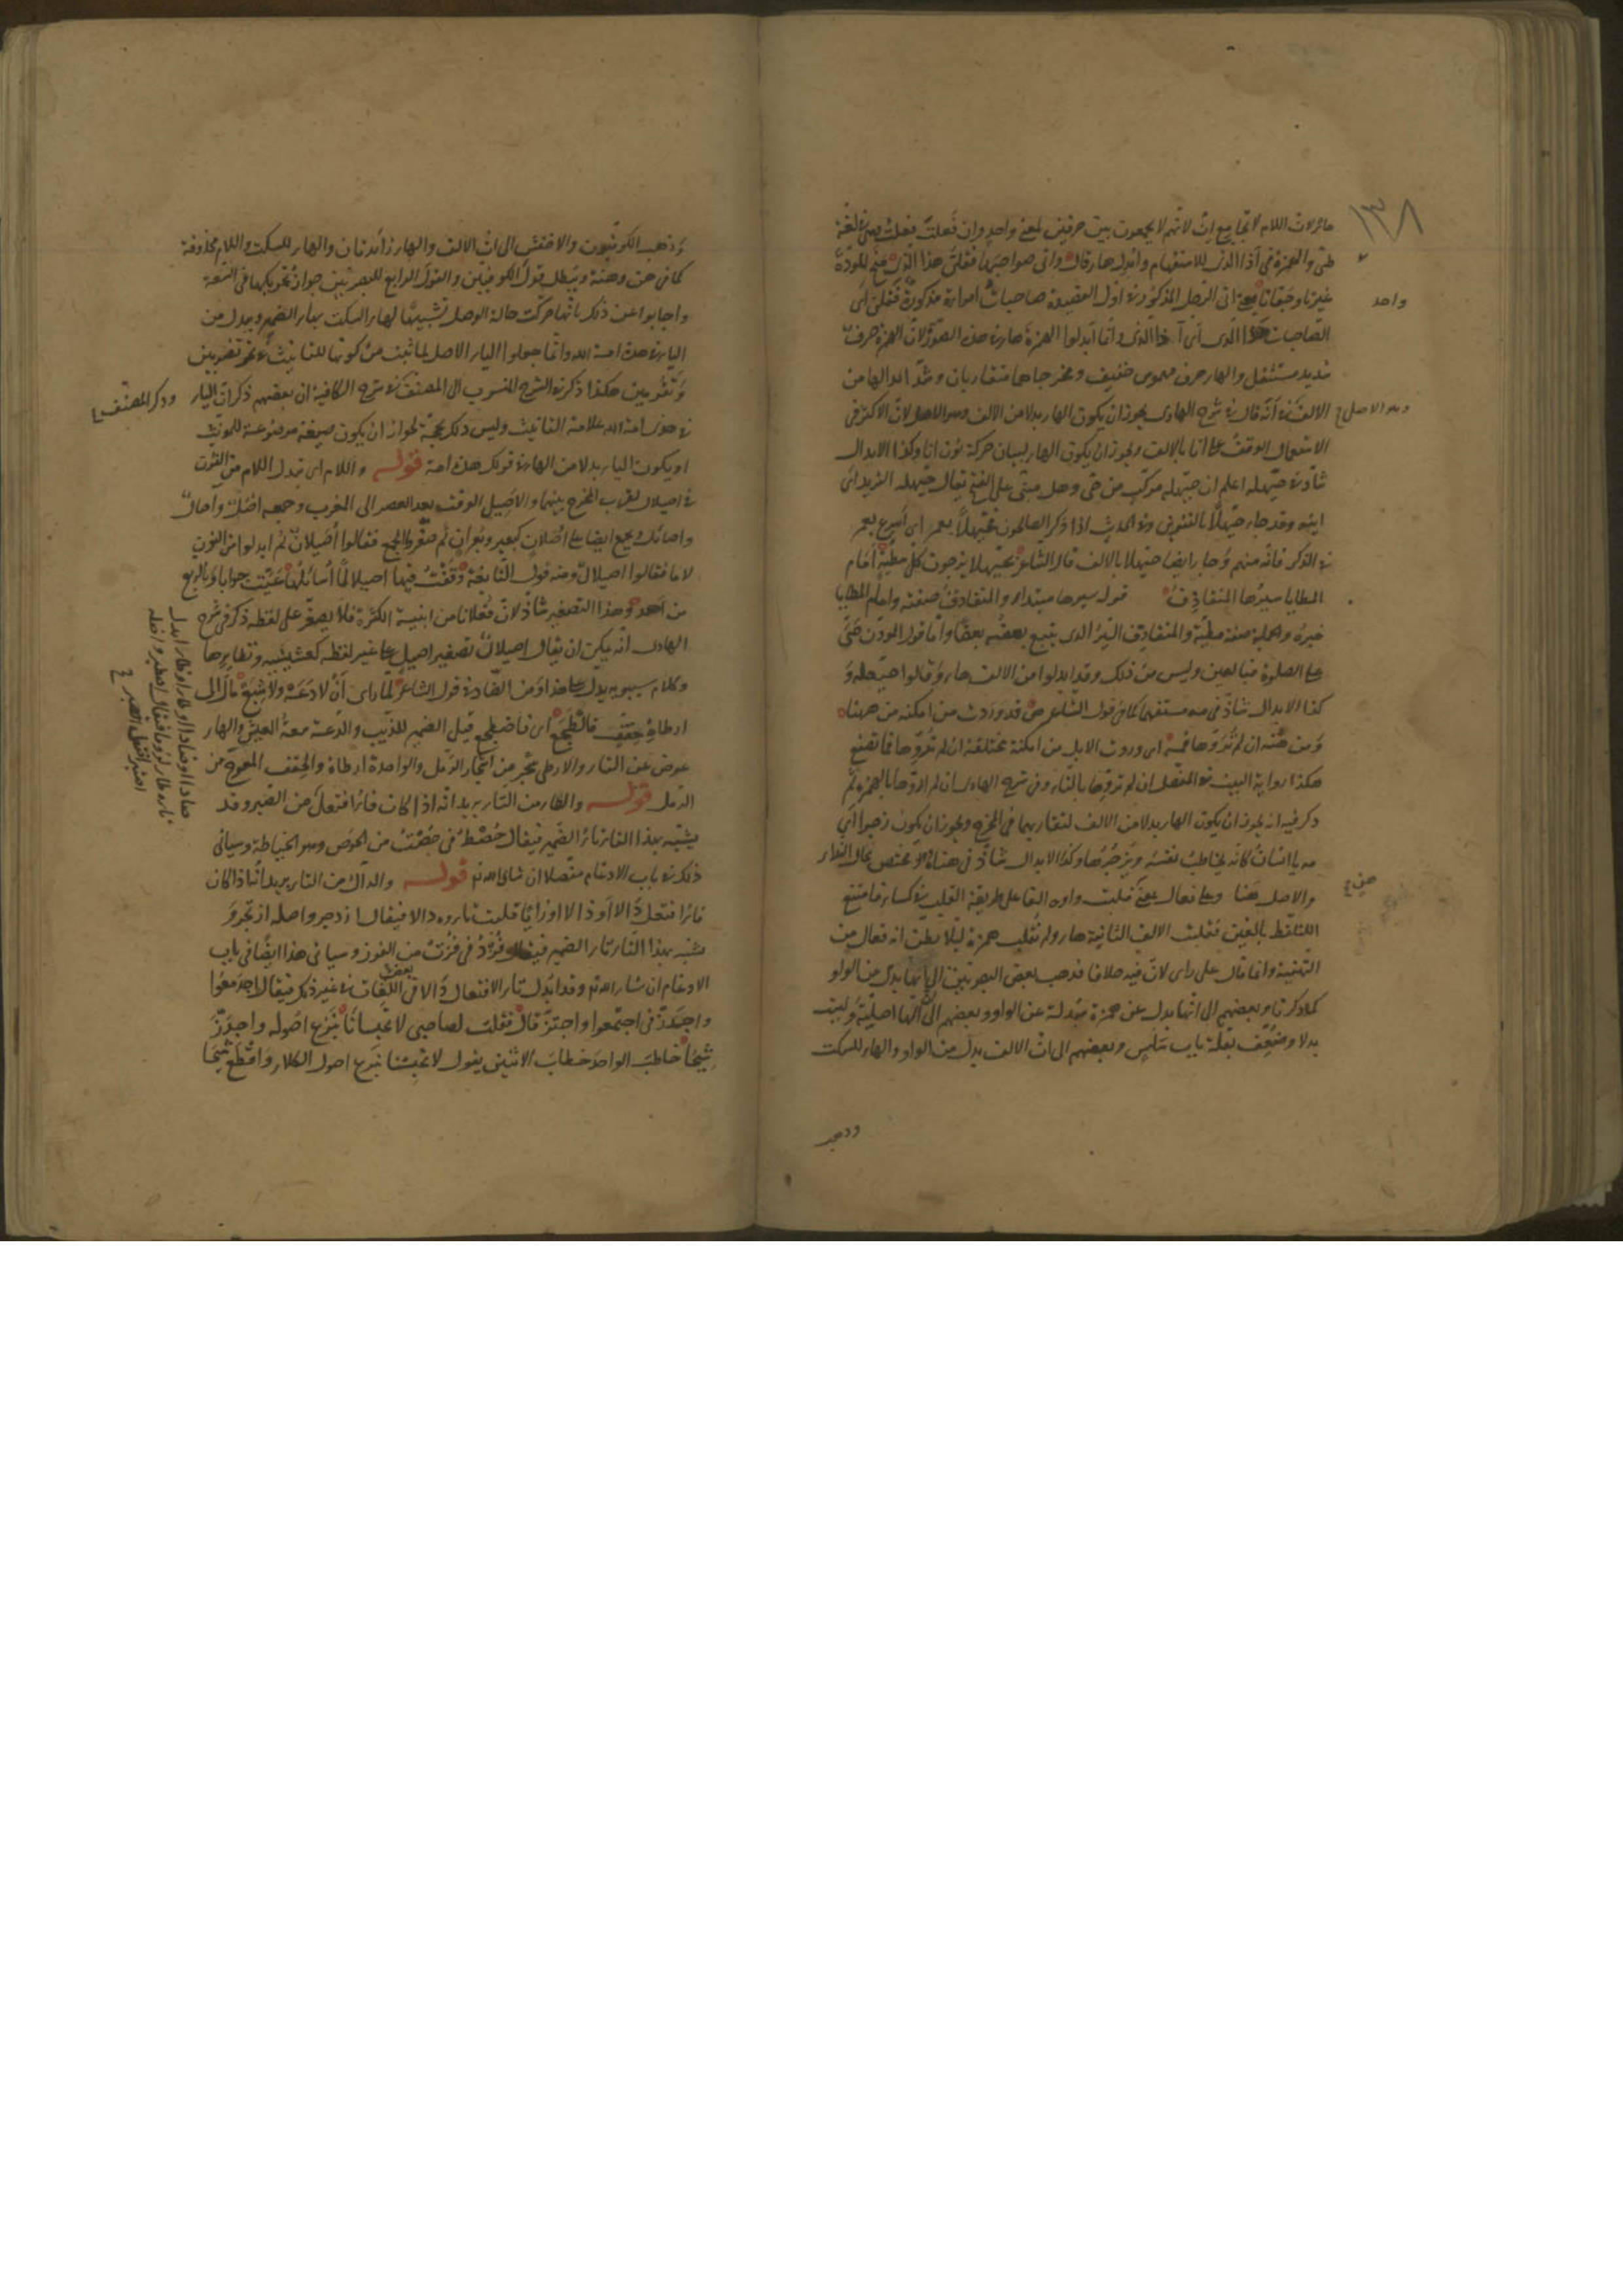 ١٣٨
هاؤلان اللام لا تجامع ان لانهم لا يجمعون بين حرفين لمعنى واحد وان فعلت فعلت لغة
طي والهمزة في آذا الذي للاستفهام وابدل هاء قال واتى صواحبها فقلن هذا الذي منح المودة
غيرنا وجفانا اتى الرجل المذكور في اول القصيدة صاحبات امراة مذكورة فقلن اى
واحد
الصاحبات هذا الذي اى آذا الذي وانما ابدلوا الهمزة هاء في هذه الصور لان الهمزة حرف
شديد مستثقل والهاء حرف مهموس خفيف ومخرجاهما متقاربان وشذ ابدالها من
الالف في انه قال في شرح الهادى يجوز ان يكون الهاء بدلا من الالف وهو الاصل لان الاكثر في
وهو الاصل
الاستعمال الوقف على انا بالالف ويجوز ان يكون الهاء لبيان حركة نون انا وكذا الابدال
شاذ في حيهله اعلم ان حيهله مركب من حي وهل مبني على الفتح يقال حيهله الثريد اى
ايته وقد جاء حيهلا بالتنوين وفي الحديث اذا ذكر الصالحون فحيهلا بعمر اى اسرع بعمر
في الذكر فانه منهم وجاء ايضا حيهلا بالالف قال الشاعر بحيهلا يزجون كل مطية امام
المطايا سيرها المتقاذف قوله سيرها مبتداء والمتقاذف صفته وامام المطايا
خبره والجملة صفة مطية والمتقاذف السير الذي يتبع بعضه بعضا واما قول المؤذن حي
على الصلوة فبالعين وليس من ذلك وقد ابدلوا من الالف هاء وقالوا حيهله و
كذا الابدال شاذ في مه مستفهما كما في قول الشاعر قد وردت من امكنة من ههنا
ومن هنه ان لم تروها فمه اى وردت الابل من امكنة مختلفة ان لم تروها فما تصنع
هكذا رواية البيت في المفصل ان لم تروها بالتاء وفي شرح الهادى ان لم اروها بالهمزة ثم
ذكر فيه انه يجوز ان يكون الهاء بدلا من الالف لتقاربهما في المخرج ويجوز ان يكون زجرا اى
مه يا انسان كانه يخاطب نفسه ويزجرها وكذا الابدال شاذ في هناه وهو مختص بحال النداء
والاصل هنا وعلى فعال بمعنى قلبت واوه الفا على طريقة القلب في كساء فامتنع
هن
التلفظ بالفين فقلبت الالف الثانية هاء ولم تقلب همزة ليلا يظن انه فعال من
التهنية وانما قال على راى لان فيه خلافا فذهب بعض البصريين الى انها بدل من الواو
كما ذكرنا وبعضهم الى انها بدل عن همزة مبدلة عن الواو وبعضهم الى انها اصلية وليست
بدلا وضعف بقلة باب سلس وبعضهم الى ان الالف بدل من الواو والهاء للسكت
وذهب
وذهب الكوفيون والاخفش الى ان الالف والهاء زائدتان والهاء للسكت واللام محذوفة
كما في هن وهنة ويبطل قول الكوفيين والقول الرابع للبصريين جواز تحريكها في السعة
واجابوا عن ذلك بانها حركت حالة الوصل تشبيها لهاء السكت بهاء الضمير ويبدل من
الياء في هذه امة الله وانما جعلوا الياء الاصل لما ثبت من كونها للتانيث في نحو تضربين
وتقومين هكذا ذكر في الشرح المنسوب الى المصنف في شرح الكافية ان بعضهم ذكر ان الياء
وذكر المصنف
في هذى امة الله علامة التانيث وليس ذلك بحجة لجواز ان يكون صيغة موضوعة للمونث
او يكون الياء بدلا من الهاء في قولك هذه امة قوله واللام اى تبدل اللام من النون
في اصيلال لقرب المخرج بينهما والاصيل الوقت بعد العصر الى المغرب وجمعه اصل وآصال
واصائل ويجمع ايضا على اصلان كبعير وبعران ثم صغروا الجمع فقالوا اصيلان ثم ابدلوا من النون
لاما فقالوا اصيلال ومنه قول النابغة وقفت فيها اصيلالا اسائلها عيت جوابا وبالربع
من احد وهذا التصغير شاذ لان فعلانا من ابنية الكثرة فلا يصغر على لفظه ذكر في شرح
الهادى انه يمكن ان يقال اصيلان تصغير اصيل على غير لفظه كعشيشية ونظايرها
وكلام سيبويه يدل على هذا ومن الضاد في قول الشاعر لما راى ان لا دعه ولا شبع مال الى
ارطاة حقف فالطجع اى فاضطجع قيل الضمير للذيب والدعة سعة العيش والهاء
عوض عن الفاء والارطى شجر من اشجار الرمل والواحدة ارطاة والحقف المعوج من
الرمل قوله والطاء من التاء يريد انه اذا كان فاء افتعل من الصبر وقد
صادا او ضادا او طاء او ظاء ابدل
تاءه طاء لزوما فيقال اصطبر واصله
اصتبر افتعل من الصبر
يشبه بهذا التاء تاء الضمير فيقال حصط في حصت من الحوص وهو الخياطة وسياتى
ذلك في باب الادغام مفصلا ان شاء الله قوله والدال من التاء يريد انها اذا كان
فاء افتعل دالا او ذالا او زايا قلبت تاءه دالا فيقال ازدجر واصله ازتجر و
يشبه بهذا التاء تاء الضمير فيقال فزد في فزت من الفوز وسياتى هذا ايضا في باب
الادغام ان شاء الله وقد ابدلت تاء الافتعال دالا في بعض اللغات في غير ذلك فيقال اجدمعوا
واجدز في اجتمعوا واجتز قال فقلت لصاحبى لا تحبسانا بنزع اصوله واجدز
شيحا خاطب الواحد خطاب الاثنين يقول لا تحبسنا بنزع اصول الكلاء واقطع شيحا